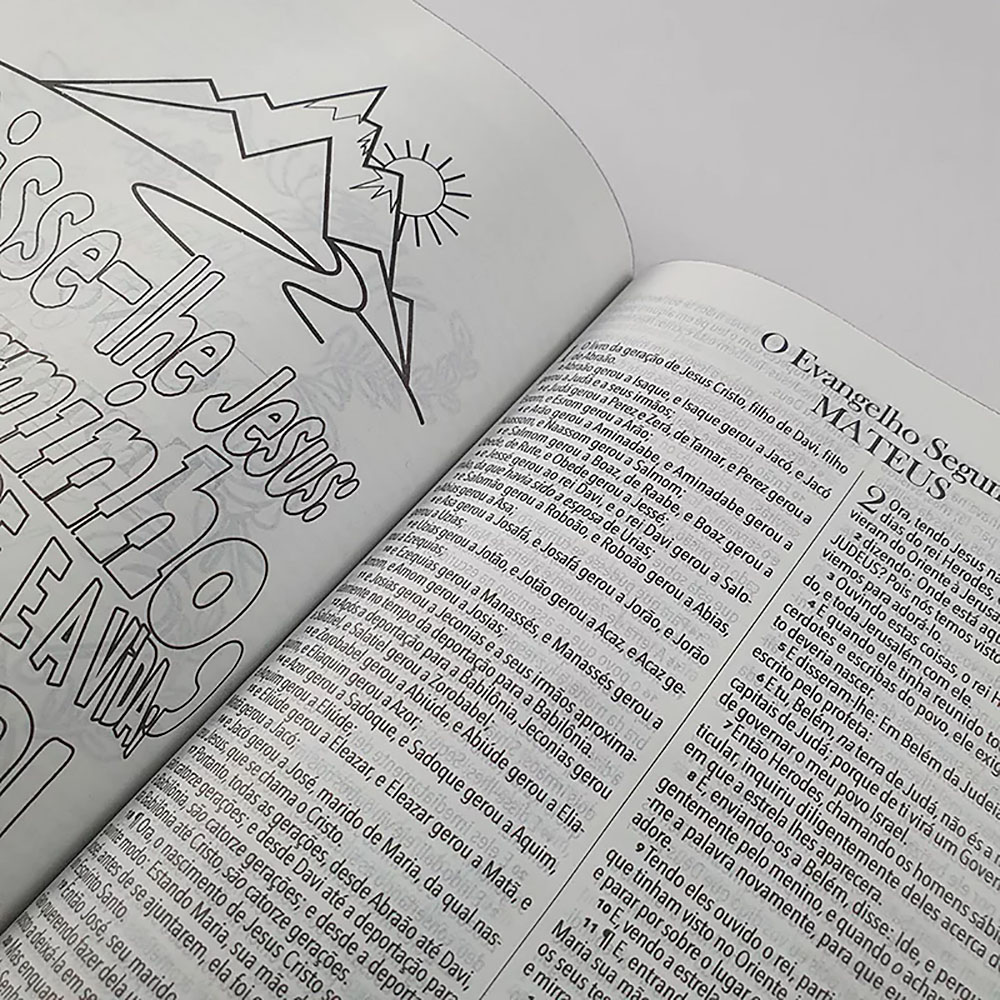 isse-lhe Jesus:
minho,
E A VIDA.
O Evangelho Segun
MATEUS
O livro da geração de Jesus Cristo, filho de Davi, filho
de Abraão.
Abraão gerou a Isaque, e Isaque gerou a Jacó, e Jacó
gerou a Judá e a seus irmãos;
e Judá gerou a Perez e Zerá, de Tamar, e Perez gerou a
e Esrom gerou a Arão;
e Arão gerou a Aminadabe, e Aminadabe gerou a
e Naassom gerou a Salmom;
e Salmom gerou a Boaz, de Raabe, e Boaz gerou a
de Rute, e Obede gerou a Jessé;
e Jessé gerou ao rei Davi, e o rei Davi gerou a Salo-
da que havia sido a esposa de Urias;
Salomão gerou a Roboão, e Roboão gerou a Abias,
gerou a Asa;
e Asa gerou a Josafá, e Josafá gerou a Jorão, e Jorão
gerou a Uzias;
e Uzias gerou a Jotão, e Jotão gerou a Acaz, e Acaz ge-
Ezequias;
e Ezequias gerou a Manassés, e Manassés gerou a
e Amom gerou a Josias;
e Josias gerou a Jeconias e a seus irmãos aproxima-
no tempo da deportação para a Babilônia.
Após a deportação para Babilônia, Jeconias gerou
e Salatiel gerou a Zorobabel,
e Zorobabel gerou a Abiúde, e Abiúde gerou a Elia-
e Eliaquim gerou a Azor,
e Azor gerou a Sadoque, e Sadoque gerou a Aquim,
gerou a Eliúde,
e Eliúde gerou a Eleazar, e Eleazar gerou a Matã, e
gerou a Jacó,
e Jacó gerou a José, marido de Maria, da qual nas-
Jesus que se chama o Cristo.
Portanto, todas as gerações, desde Abraão até Davi,
gerações; e desde Davi até a deportação para
Babilônia, são catorze gerações; e desde a deportação
Babilônia até Cristo, são catorze gerações.
Ora, o nascimento de Jesus Cristo
modo: Estando Maria, sua mãe,
antes de se ajuntarem, ela foi
Santo.
José, seu marido
2 Ora, tendo Jesus na
dias do rei Herodes,
vieram do Oriente a Jerusa
2 dizendo: Onde está aqu
JUDEUS? Pois nós já temos visto
viemos para adorá-lo.
3 Ouvindo estas coisas, o rei
do, e toda Jerusalém com ele.
4 E quando ele tinha reunido to
cerdotes e escribas do povo, ele exi
to deveria nascer.
5 E disseram-lhe: Em Belém da Judei
escrito pelo profeta:
6 E tu, Belém, na terra de Judá, não és a
capitais de Judá, porque de ti virá um Gover
de governar o meu povo Israel.
7 Então Herodes, chamando os homens sábi
ticular, inquiriu diligentemente deles acerca d
em que a estrela lhes aparecera.
8 E, enviando-os a Belém, disse: Ide, e pergu
gentemente pelo menino, e quando o acha
-me a palavra novamente, para que eu
adore.
9 Tendo eles ouvido o rei, parti
que tinham visto no Oriente
e parar por sobre o lugar
10 E, vendo a estrela
11 ¶ E, entrand
Maria sua mã
os seus tes
e mirra